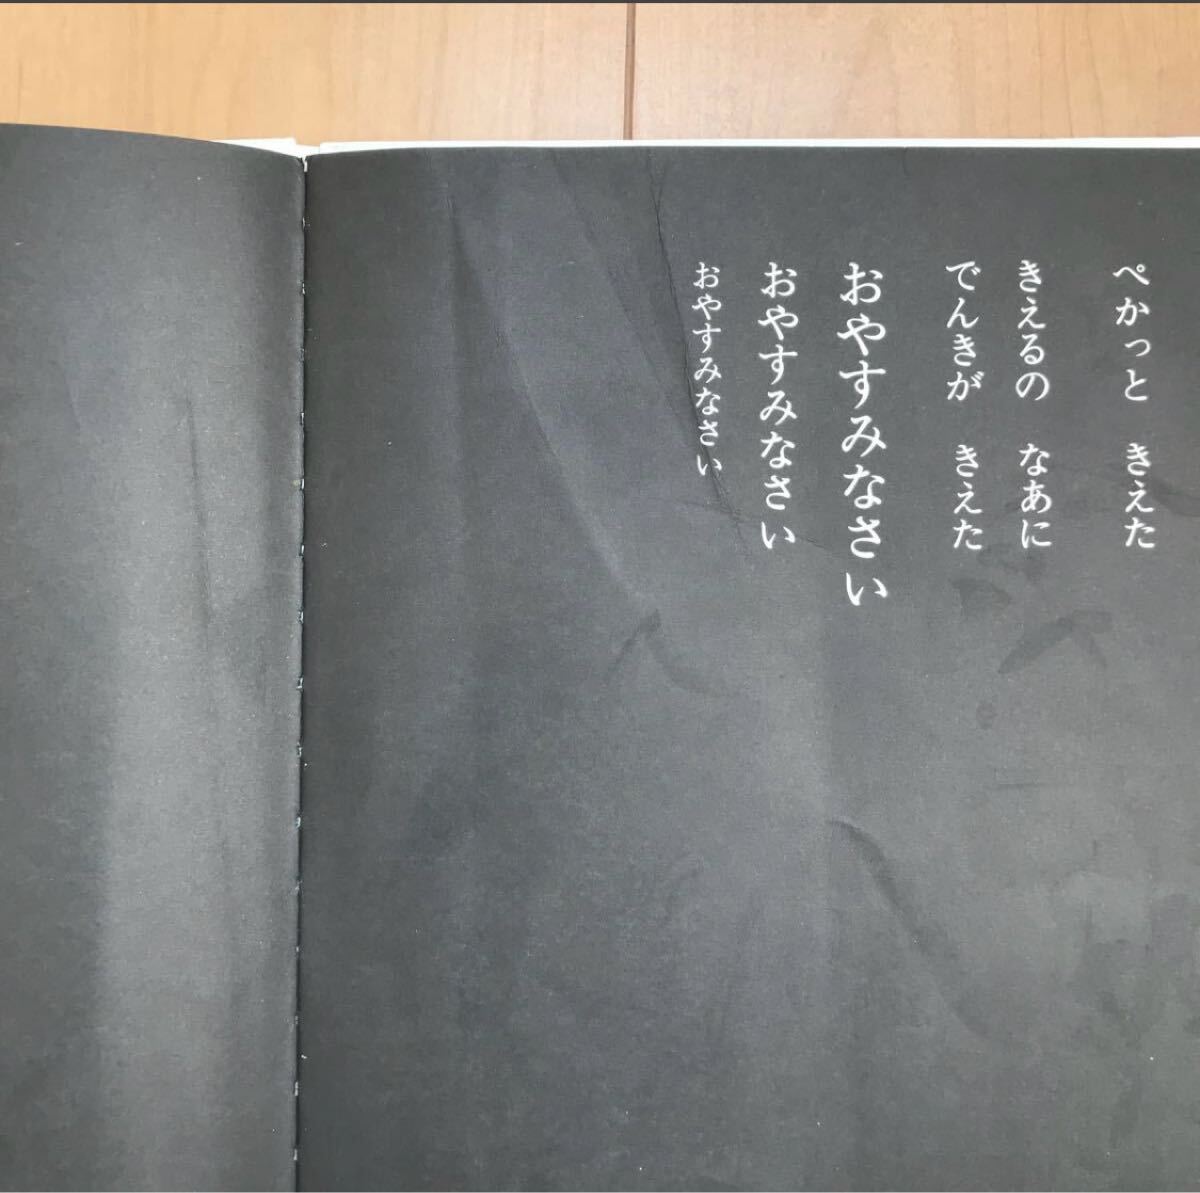 ぺかっと　きえた
きえるの　なあに
でんきが　きえた
おやすみなさい
おやすみなさい
おやすみなさい